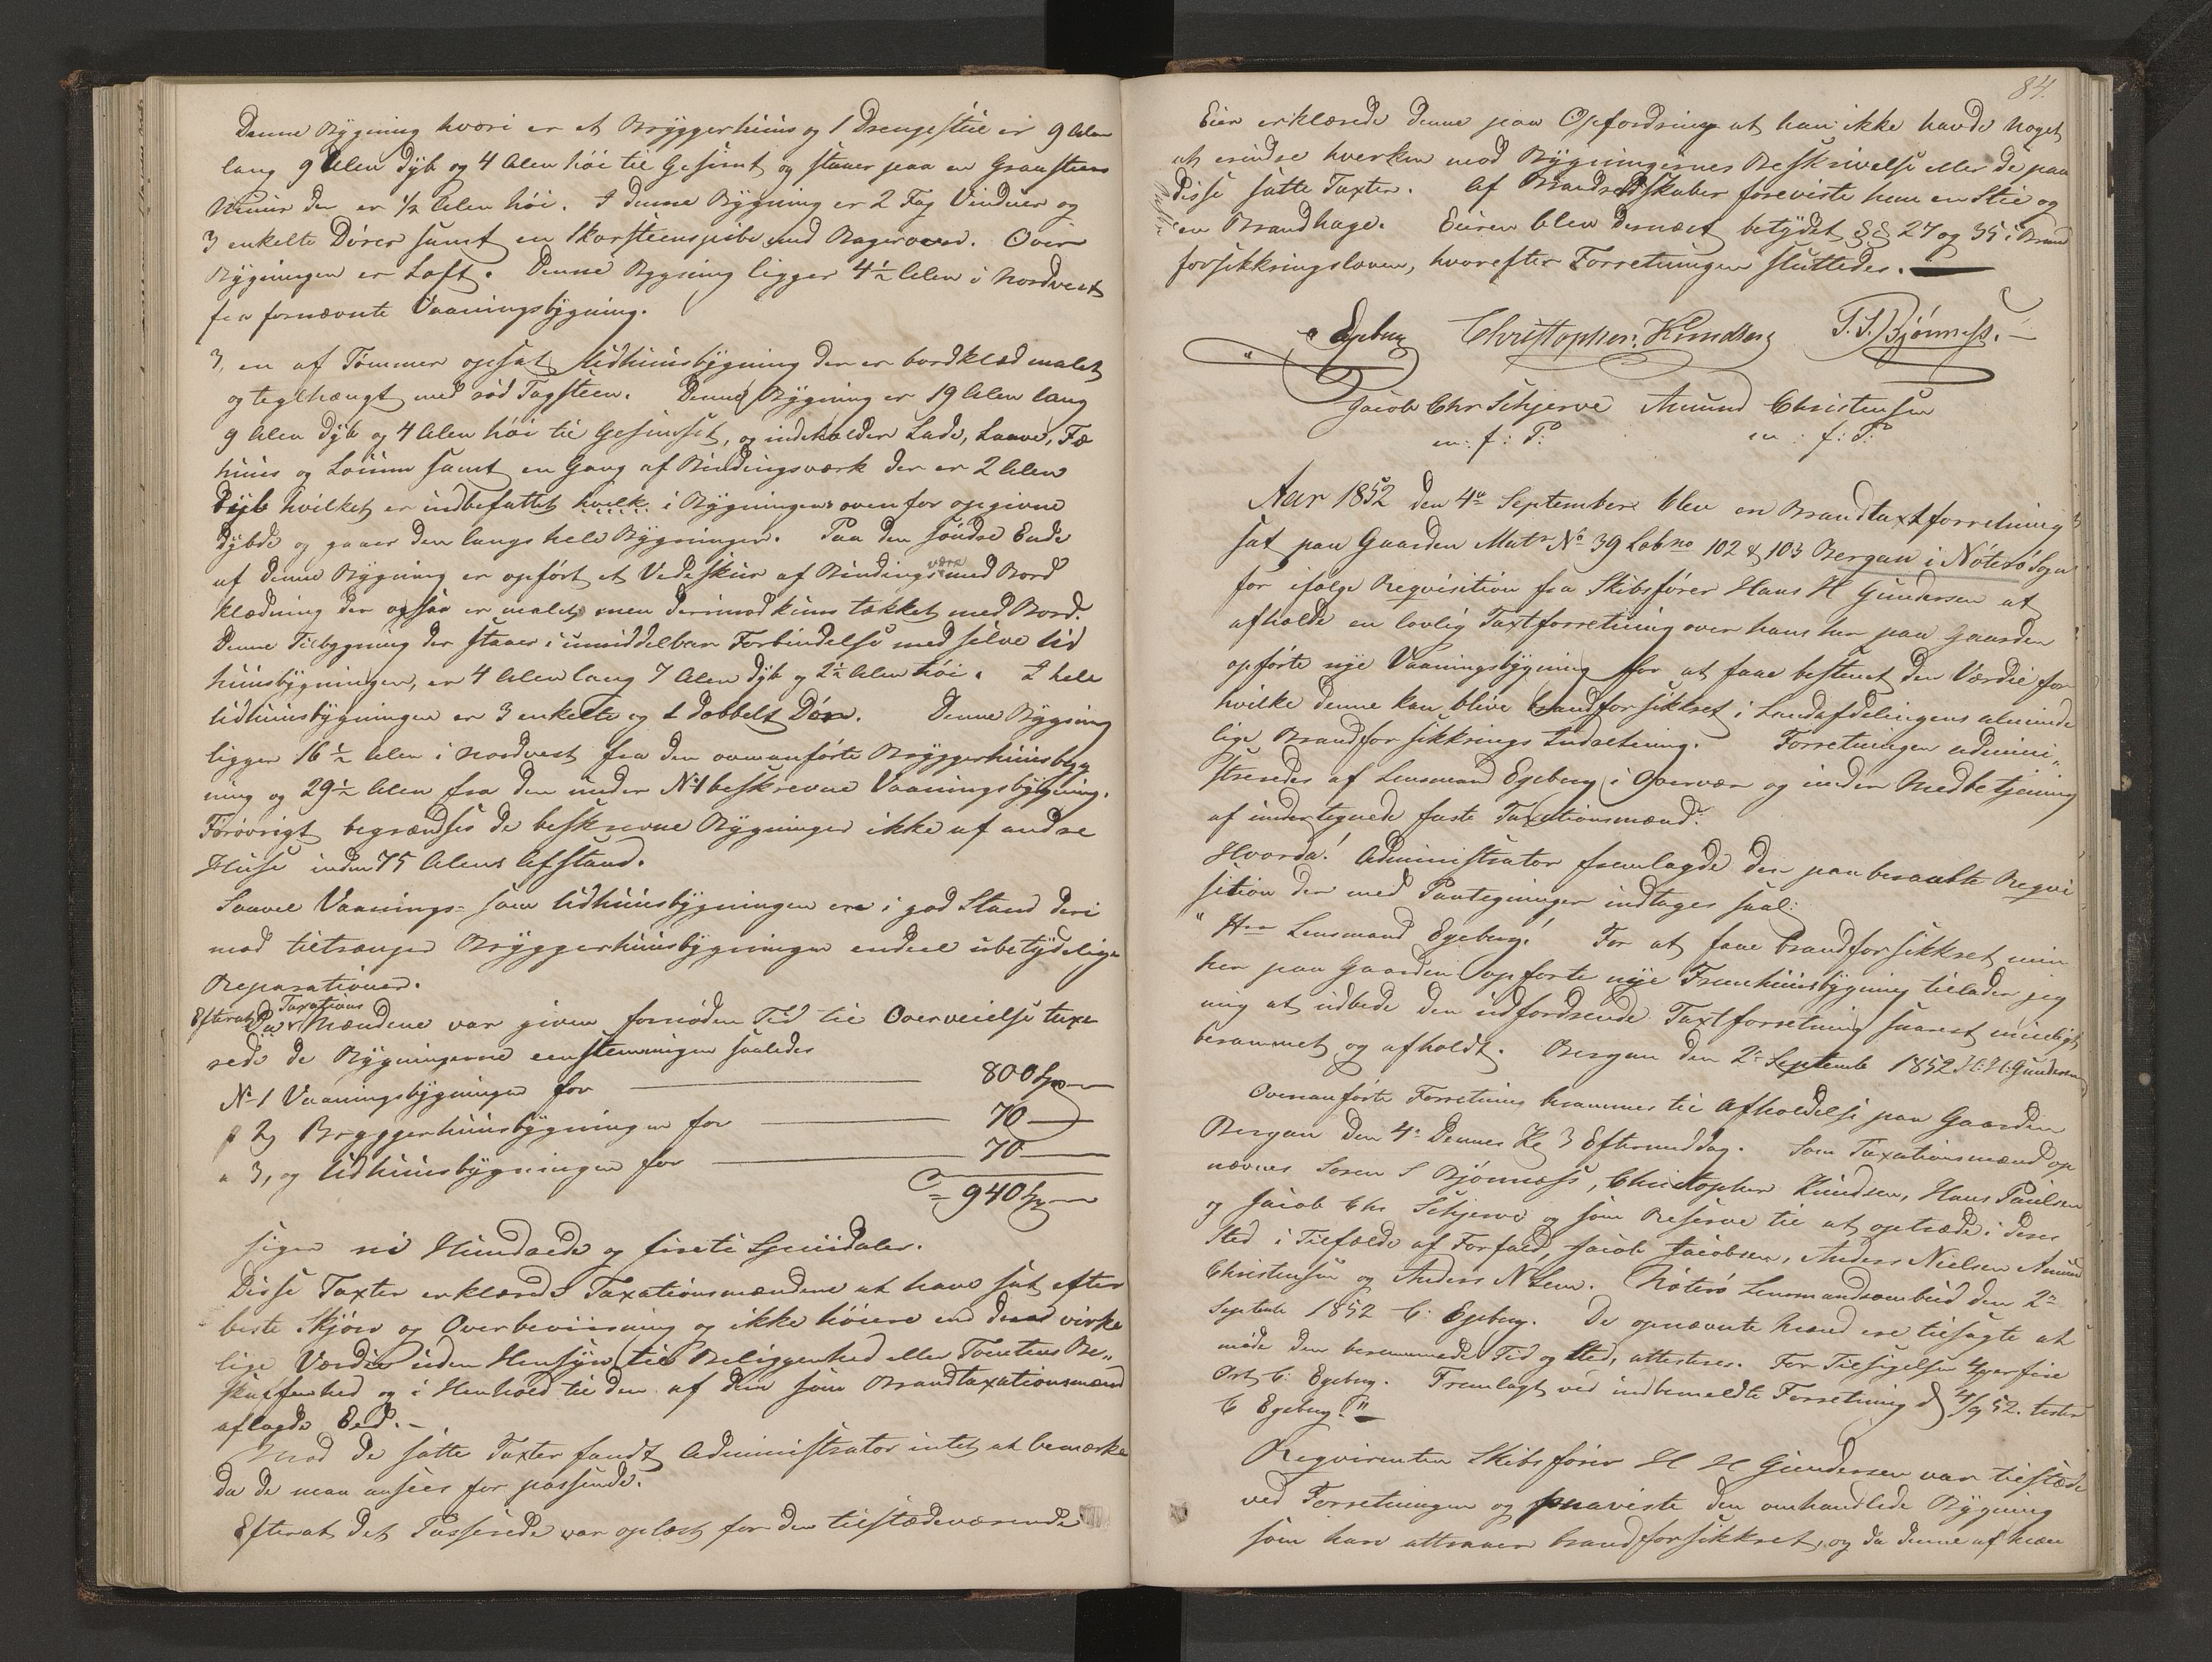 Denne Bygning hvori er et Bryggerhuus og 1 Drengestue er 9 Alen
lang 9 Alen dyb og 4 Alen høi til Gesimt og staaer paa en Graasteens
Muur der er 1/2 Alen høi. I denne Bygning er 2 Fag Vinduer og
3 enkelte Dører samt en Skorsteenspibe med Bagerovn. Over
Bygningen er Loft. Denne Bygning ligger 4 1/2 Alen i Nordvest
fra fornævnte Vaaningsbygning.
3, en af Tømmer opsat Udhuusbygning der er bordklæd malet
og teglhængt med rød Tagsteen. Denne Bygning er 19 Alen lang
9 Alen dyb og 4 Alen høi til Gesimset, og indeholder Lade, Laave, Fæ
huus og Loium samt en Gang af Bindingsværk der er 2 Alen
dyb hvilket er indbefattet hvilk i Bygningens ovenfor opgivne
Dybde og gaaer den langs hele Bygningen. Paa den søndre Ende
af denne Bygning er opført et Vedeskuur af Bindingsværk med Bord
klædning der ogsaa er malet men derimod kuns takket med Bord.
Denne Tilbygning der staaer i umiddelbar Forbindelse med selve Ud
huusbygningen, er 4 Alen lang 7 Alen dyb og 2 1/2 Alen høi. I hele
Udhuusbygningen er 3 enkelte og 1 dobbelt Dør. Denne Bygning
ligger 16 1/2 Alen i Nordvest fra den ovenanførte Bryggerhuusbyg
ning og 29 1/2 Alen fra den under No 1 beskrevne Vaaningsbygning.
Forøvrigt begrændses de beskrevne Bygninger ikke af andre
Huse inden 75 Alens Afstand.
Saavel Vaanings- som Udhuusbygningen ere i god Stand deri
mod tiltrænger Bryggerhuusbygningen endeel ubetydelige
Reparationer.
Efterat Taxations Mændene var given fornøden Tid til Overveielse taxe
rede de Bygningerne eenstemmigen saaledes
No 1 Vaaningsbygningen for 800 Spd
" 2, Bryggerhuusbygningen for 70
" 3, og Udhuusbygningen for 70
= 940 Spd
siger ni Hundrede og fireti Speciedaler.
Disse Taxter erklærede Taxationsmændene at have sat efter
beste Skjøn og Overbeviisning og ikke høiere end deres virke
lige Værdie uden Hensyn til Beliggenhed eller Tomtens Be„
skaffenhed og i Henhold til den af dem som Brandtaxationsmænd
aflagde Eed.-
Mod de satte Taxter fandt Administrator intet at bemærke
da de maa ansees for passende.
Efterat det Passerede var oplæst for den tilstædeværende
84.
Eier erklærede denne paa Opfordring at han ikke havde noget
at erindre hverken mod Bygningernes Beskrivelse eller de paa
disse satte Taxter. Af Brandredskaber foreviste han en Stie og
en Brandhage. Eieren blev dernæst betydet §§ 27 og 35 i Brand
forsikkringsloven, hvorefter Forretningen sluttedes.
Egeberg Christopher Knudsen S. S. Bjønness.
Jacob Chr Schjerve Amund Christensen
m: f: P: m: f: P:
Aar 1852 den 4de September blev en Brandtaxtforretning
sat paa Gaarden Matr No 39 Løb no 102 & 103 Bergan i Nøterø Sogn
for ifølge Reqvisition fra Skibsfører Hans H Gundersen at
afholde en lovlig Taxtforretning over hans her paa Gaarden
opførte nye Vaaningsbygning for at faae bestemt den Værdie for
hvilke denne kan blive brandforsikkret i Landafdelingens alminde
lige Brandforsikkrings Indretning. Forretningen admini„
streredes af Lensmand Egeberg i Overvær og under Medbetjening
af undertegnede faste Taxationsmænd.
Hvorda! Administrator fremlagde den paaberaabte Reqvi
sition der med Paategninger indtages saal:
"Hrr Lensmand Egeberg! For at faae brandforsikkret min
her paa Gaarden opførte nye Fremhuusbygning tillader jeg
mig at udbede den udfordrende Taxtforretning snarest mueligt
berammet og afholdt. Bergan den 2de Septemb 1852 H. H. Gundersen
Ovenanførte Forretning berammes til Afholdelse paa Gaarden
Bergan den 4de Dennes Kl 3 Eftermiddag. Som Taxationsmænd op
nævnes Søren S Bjønness, Christopher Knudsen, Hans Paulsen
og Jacob Chr Schjerve og som Reserve til at optræde i deres
Sted i Tilfælde af Forfald, Jacob Jacobsen, Anders Nielsen Amund
Christensen og Anders N Leen. Nøterø Lensmandsombud den 2de
Septemb 1852 C: Egeberg. De opnævnte Mænd ere tilsagte at
møde den berammede Tid og Sted, attesteres. For Tilsigelsen 4 ger fire
Ort C: Egeberg. Fremlagt ved indbemeldte Forretning d 4/9 52. tester
C Egeberg."
Reqvirenten Skibsfører H H Gundersen var tilstæde
ved Forretningen og paaviste den omhandlede Bygning
som han attraaer brandforsikkret, og da denne af Mæn